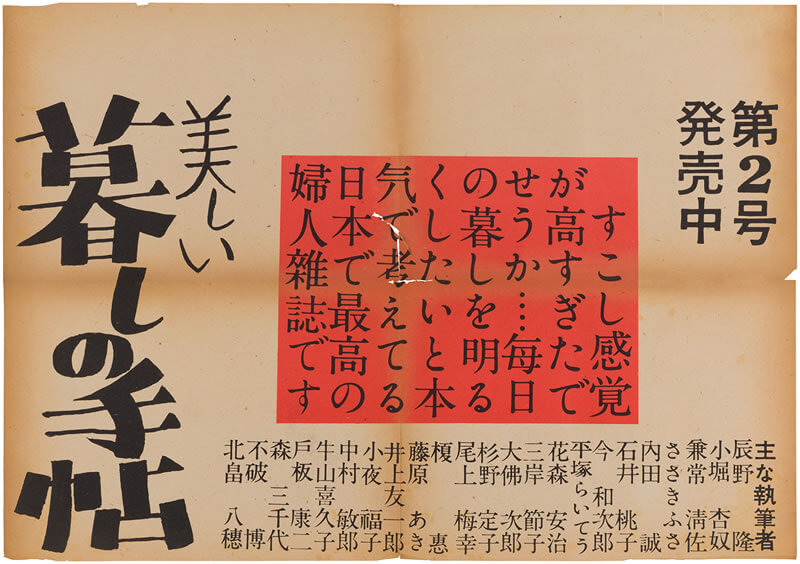 第2号
発売中
すこし感覚
が高すぎたで
せうか…毎日
の暮しを明る
くしたいと本
気で考えてる
日本で最高の
婦人雜誌です
美しい
暮しの手帖
主な執筆者
辰野 隆
小堀 杏奴
兼常 淸佐
ささきふさ
内田 誠
石井 桃子
今 和次郎
平塚らいてう
花森 安治
三岸 節子
大佛 次郎
杉野 定子
尾上 梅幸
榎 惠
藤原 あき
井上友一郎
小夜 福子
中村 敏郎
牛山喜久子
戸板 康二
森 三千代
不破 博
北畠 八穂